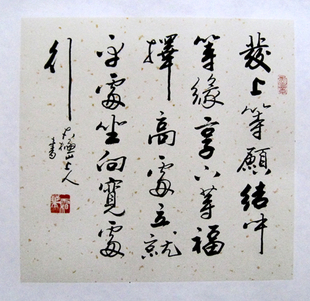 發上等願結中
等緣享下等福
擇高處立就
平處坐向寬處
行
書